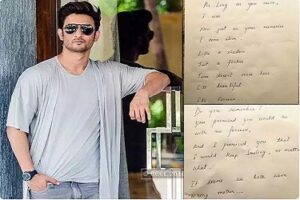 As long as you were,
I was
Now just in your memories
I come alive.
Like a shadow
Just a
Time doesn't move here
It's beautiful
It's forever
Do you remember!
You promised you would be
with me forever,
And I promised you that
I would keep smiling, no matter
what.
It seems we both were
wrong mother...